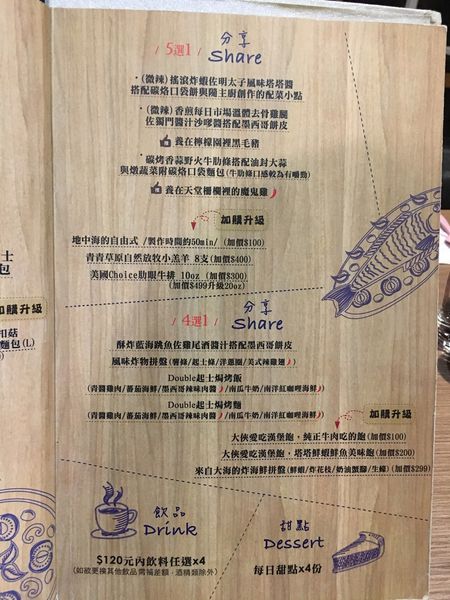 / 5選1 /
分享
Share
·(微辣)搖滾炸蝦佐明太子風味塔塔醬
搭配碳烙口袋餅與陽主廚創作的配菜小點
·(微辣)香煎每日市場溫體去骨雞腿
佐獨門醬汁沙嗲醬搭配墨西哥餅皮
養在檸檬園裡黑毛豬
·碳烤香蒜野火牛肋條搭配油封大蒜
與燉蔬菜附碳烙口袋麵包(牛肋條口感較為有嚼勁)
養在天堂柵欄裡的魔鬼雞
加購升級
地中海的自由式 /製作時間約50min/ (加價$100)
青青草原自然放牧小羔羊 8支(加價$400)
美國Choice肋眼牛排 10oz (加價$300)
(加價$499升級20oz)
/ 4選1 /
分享
Share
酥炸藍海跳魚佐雞尾酒醬汁搭配墨西哥餅皮
風味炸物拼盤(薯條/起士條/洋蔥圈/美式辣雞翅)
Double起士焗烤飯
(青醬雞肉/蕃茄海鮮/墨西哥辣味肉醬/南瓜牛奶/南洋紅咖哩海鮮)
Double起士焗烤麵
(青醬雞肉/蕃茄海鮮/墨西哥辣味肉醬/南瓜牛奶/南洋紅咖哩海鮮)
加購升級
大俠愛吃漢堡飽,純正牛肉吃的飽(加價$100)
大俠愛吃漢堡飽,塔塔鮮蝦鮮魚美味飽(加價$200)
來自大海的炸海鮮拼盤(鮮蝦/炸花枝/奶油蟹腳/生蠔)(加價$299)
飲品
Drink
$120元內飲料任選x4
(如欲更換其他飲品需補差額,酒精類除外)
甜點
Dessert
每日甜點x4份
起士
包
加購升級
扣菇
麵包(L)